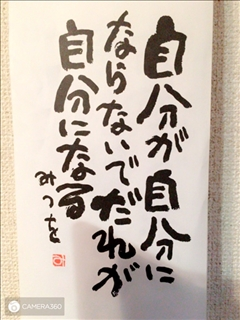 自分が自分に
ならないでだれが
自分になる
みつを
CAMERA360